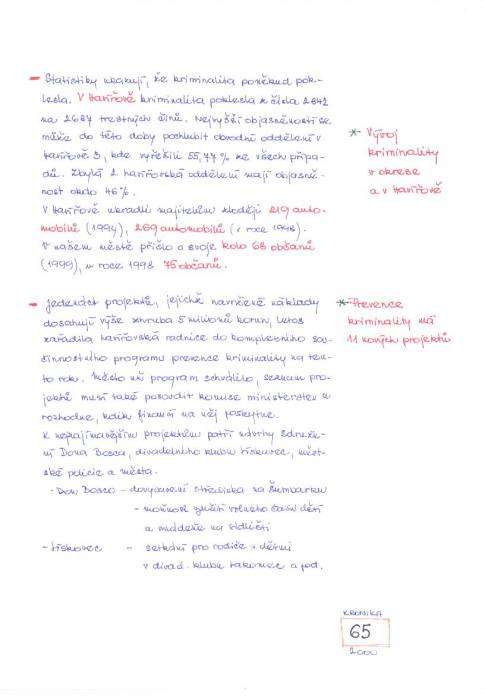 - Statistiky ukazují, že kriminalita poněkud pok-
lesla. V Havířově kriminalita poklesla z čísla 2842
na 2687 trestných činů. Nejvyšší objasněností se
může do této doby pochlubit obvodní oddělení v
Havířově 3, kde vyřešili 55,77% ze všech přípa-
dů. Zbylá 2 havířovská oddělení mají objasně-
nost okolo 46%.
V Havířově ukradli majitelům zloději 219 auto-
mobilů (1999), 269 automobilů (v roce 1998).
V našem městě přišlo o svoje kolo 68 občanů
(1999), v roce 1998 75 občanů.
* Vývoj
kriminality
v okrese
a v Havířově
- Jedenáct projektů, jejichž navržené náklady
dosahují výše zhruba 5 milionů korun, letos
zařadila havířovská radnice do komplexního sou-
činnostního programu prevence kriminality na ten-
to rok. Město už program schválilo, seznam pro-
jektů musí také posoudit komise ministerstev a
rozhodne, kolik financí na něj poskytne.
K nejzajímavějším projektům patří návrhy Sdruže-
ní Dona Bosca, divadelního klubu Vískovec, měst-
ské policie a města.
- Don Bosco - dovybavení střediska na Šumbarku
- možnost využití volného času dětí
a mládeže na sídlišti
- Vískovec - setkání pro rodiče s dětmi
v divad. klubu a pod.
* Prevence
kriminality má
11 nových projektů
KRONIKA
65
2000